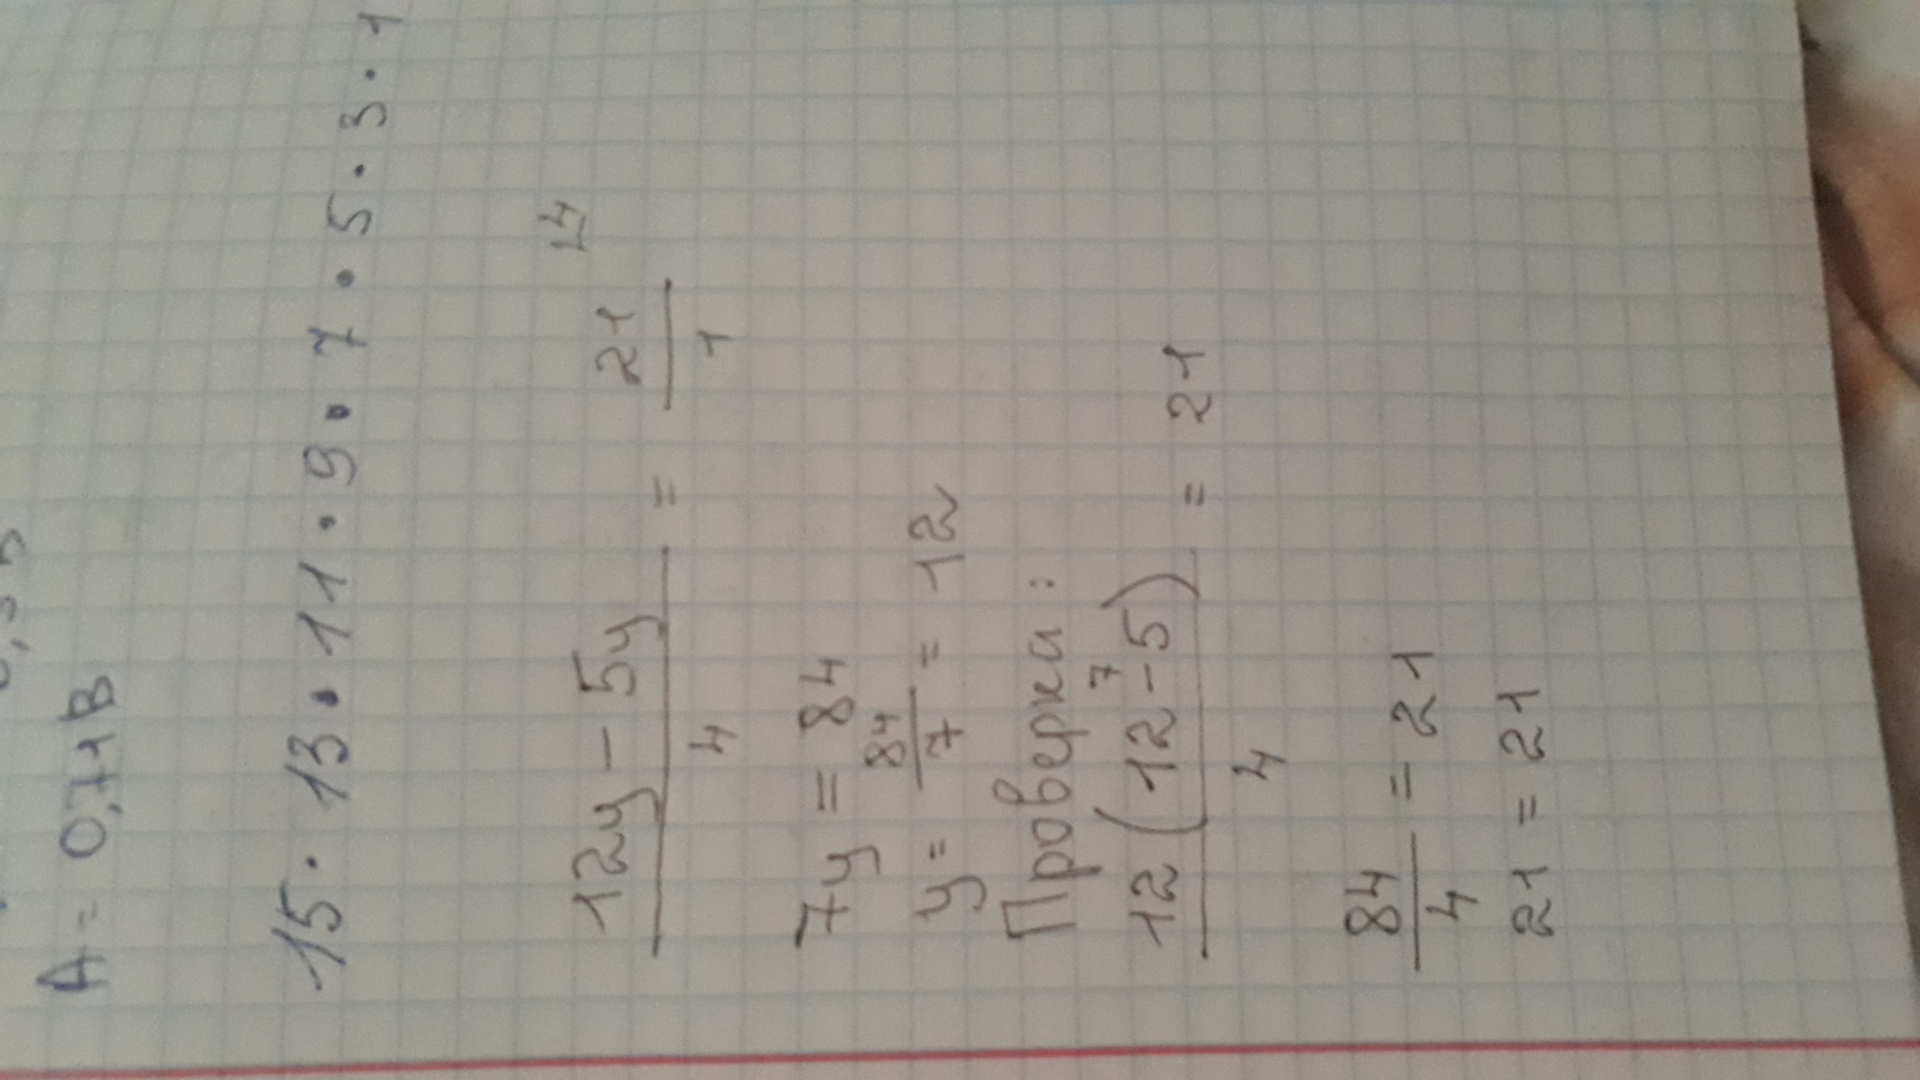 A = 0,7
15 · 13 · 11 · 9 · 7 · 5 · 3 · 1
12y - 5y / 4 = 21 / 1 4
7y = 84
y = 84 / 7 = 12
Проверка:
12 (12 - 5) 7 / 4 = 21
84 / 4 = 21
21 = 21